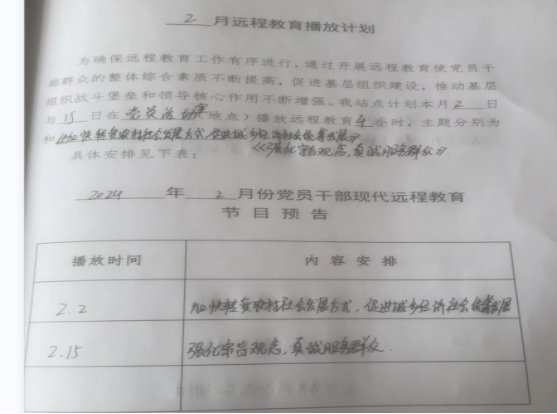 2 月远程教育播放计划
为确保远程教育工作有序进行,通过开展远程教育使党员干
部群众的整体综合素质不断提高,促进基层组织建设,推动基层
组织战斗堡垒和领导核心作用不断增强。我站点计划本月 2 日
与 15 日在 党员活动室 地点)播放远程教育 4 小时,主题分别为
和《加快转变农村社会发展方式,促进城乡经济社会统筹发展》
《强化宗旨观念,真诚服务群众》
具体安排见下表:
2024 年 2 月份党员干部现代远程教育
节目预告
播放时间 内容安排
2.2 加快转变农村社会发展方式,促进城乡经济社会统筹发展
2.15 强化宗旨观念,真诚服务群众.